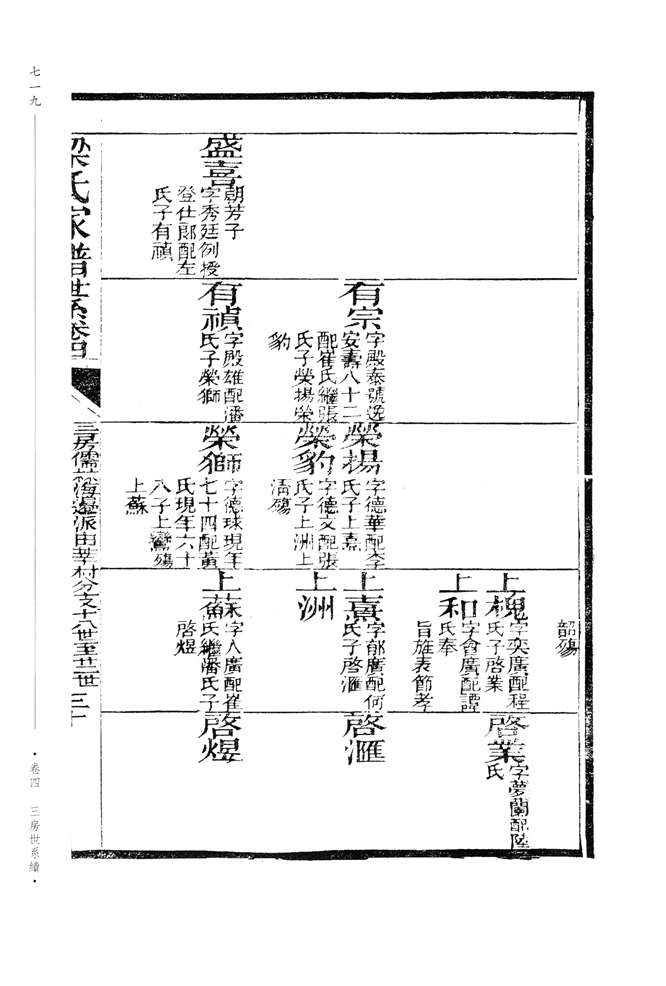 七一九
盛喜
朝芳子
字秀廷例授
登仕郎配左
氏子有禎
有宗
字殿泰號逸
安壽八十二
配崔氏繼張
氏子榮揚榮
豹
有禎
字殿雄配潘
氏子榮獅
榮揚
字德華配李
氏子上熹
榮豹
字德文配張
氏子上洲上
殤
榮獅
字德球現年
七十四配黃
氏現年六十
八子上鸞殤
上蘇
韶殤
上槐
字奕廣配程
氏子啓業
上和
字會廣配譚
氏奉
旨旌表節孝
上熹
字郁廣配何
氏子啓滙
上洲
上蘇
字人廣配崔
氏繼潘氏子
啓煜
啓業
字夢蘭配陸
氏
啓滙
啓煜
梁氏家譜世系卷四
三房儒 海邊派由莘村分支十八世至廿二世
三十
卷四 三房世系續